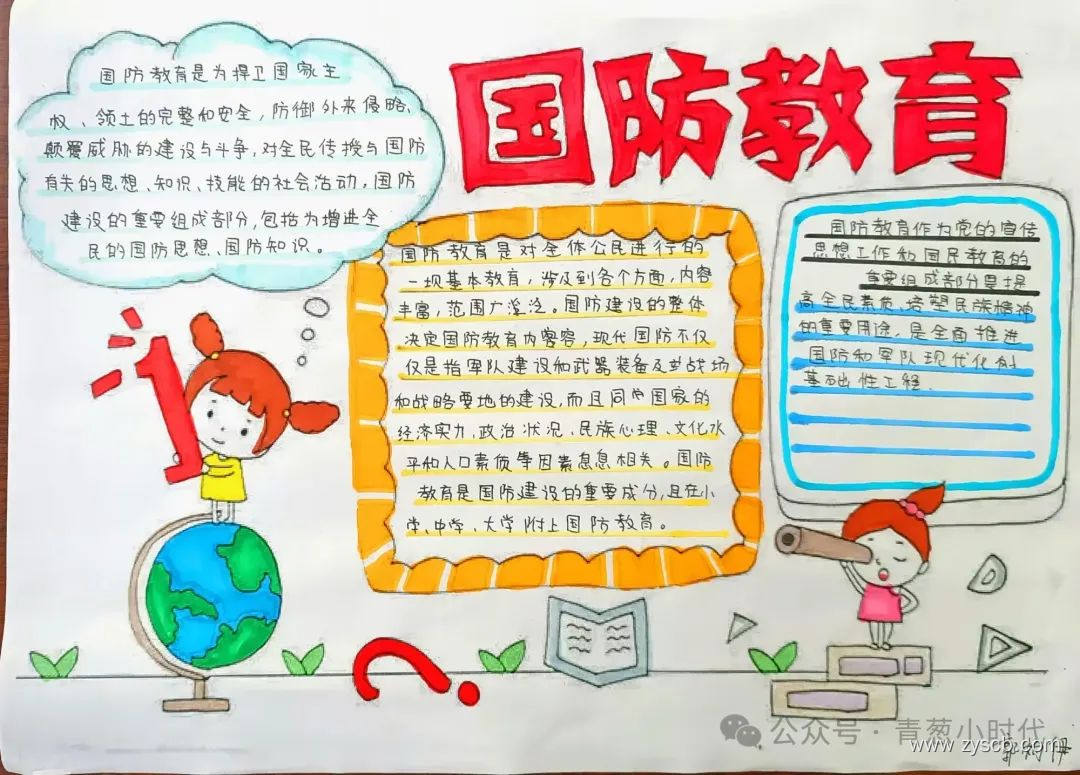 国防教育
国防教育是为捍卫国家主
权、领土的完整和安全,防御外来侵略、
颠覆威胁的建设与斗争,对全民传授与国防
有关的思想、知识、技能的社会活动,国防
建设的重要组成部分,包括为增进全
民的国防思想、国防知识。
国防教育是对全体公民进行的
一项基本教育,涉及到各个方面,内容
丰富,范围广泛泛。国防建设的整体
决定国防教育内容容,现代国防不仅
仅是指军队建设和武器装备及战场
和战略要地的建设,而且同国家的
经济实力、政治状况、民族心理、文化水
平和人口素质等因素息息相关。国防
教育是国防建设的重要成分,且在小
学、中学、大学附上国防教育。
国防教育作为党的宣传
思想工作和国民教育的
重要组成部分是提
高全民素质、培塑民族精神
的重要用途,是全面推进
国防和军队现代化的
基础性工程.
1
?
公众号·青葱小时代
www.zyscb.com